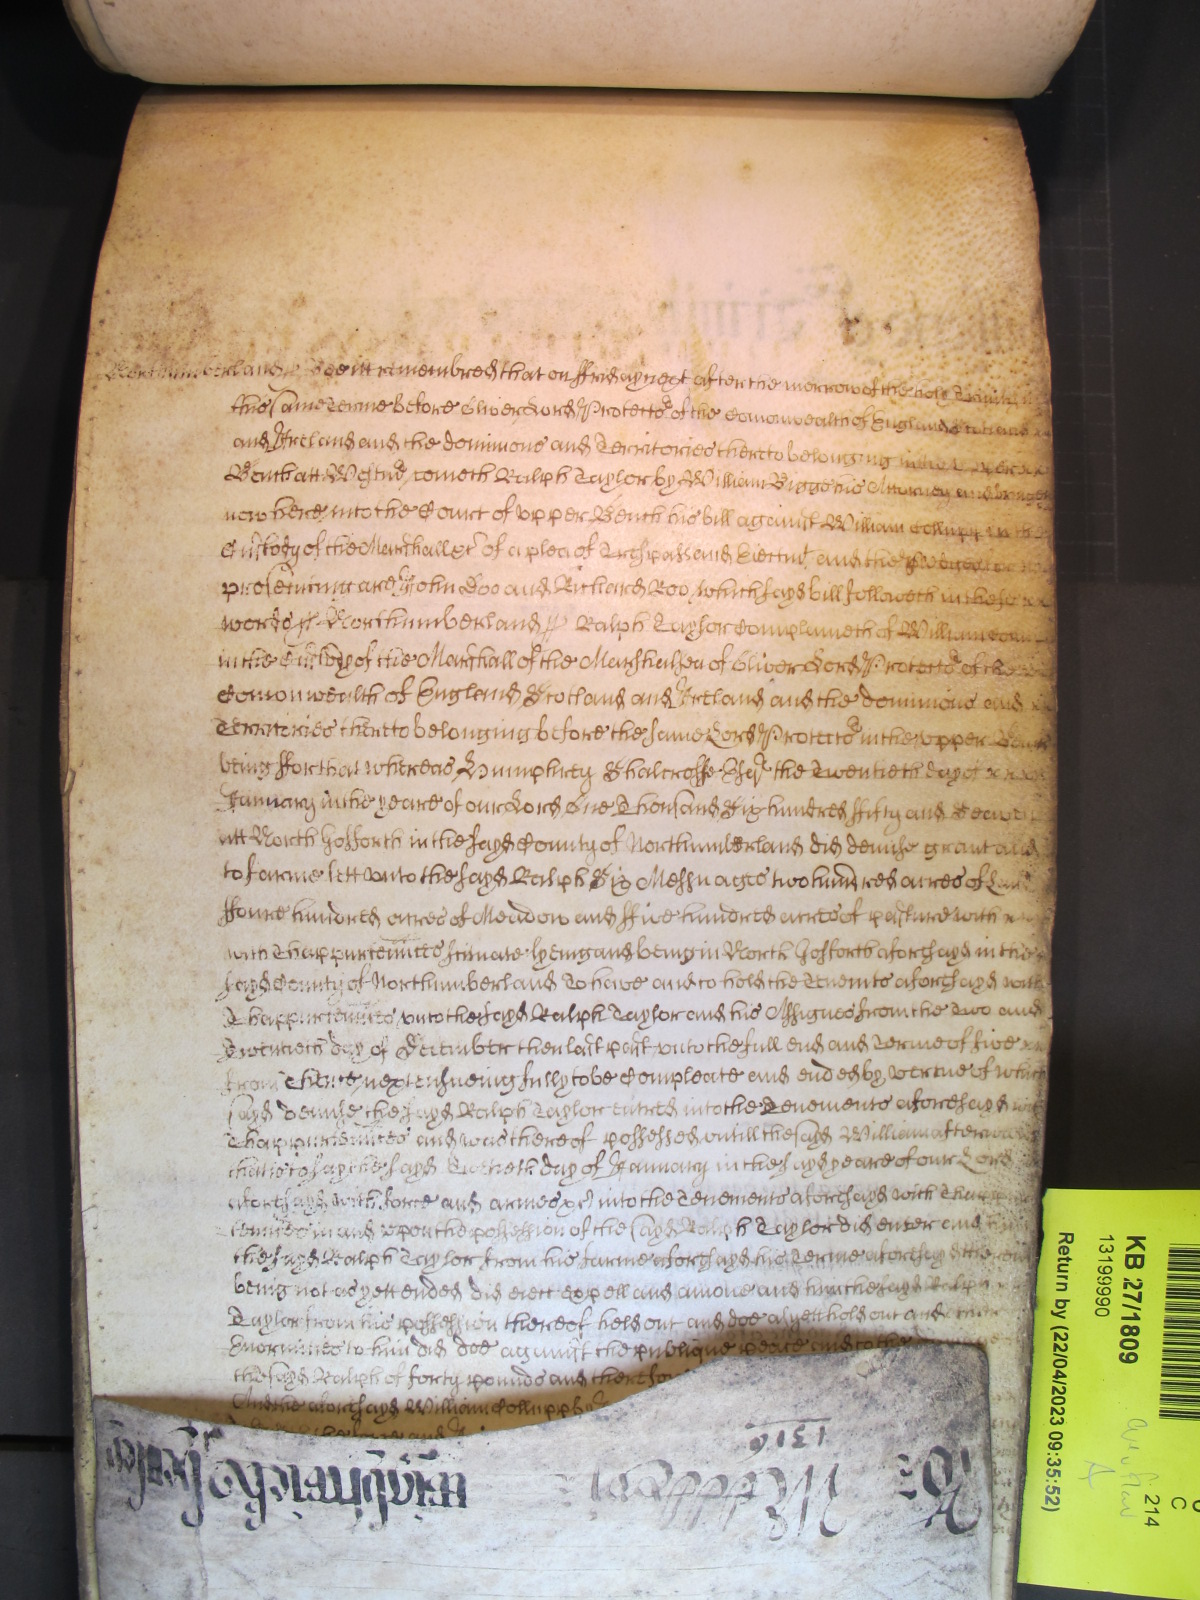 Northumberland Bee itt remembred that on ffriday next after the morrow of the holy Trinity
this same Terme before Oliver Lord Protector of the Comonwealth of England Scotland
and Ireland and the dominions and Territories thereto belonging in the Upper
Bench att Westmr cometh Ralph Taylor by William Biggs his Attorney and bringeth
now here into the Court of upper Bench his bill against William Collupp in the
Custody of the Marshall &c of a plea of Trespasse and Eiectmt and the pledges
prosecuting are John Doo and Richard Roo which sayd bill followeth in these
words ss Northumberland ss Ralph Taylor Complaineth of William
in the Custody of the Marshall of the Marshalsea of Oliver Lord Protector of the
Comonwealth of England Scotland and Ireland and the dominions and
Territories thereto belonging before the same Lord Protector in the upper Bench
being ffor that whereas Humphrey Shalcrosse Esqr the Twentieth day of
January in the yeare of our Lord One Thousand Six hundred ffifty and Seaven
att North Gosforth in the sayd County of Northumberland did demise grant and
to farme lett unto the sayd Ralph Six Messuages two hundred acres of Land
ffoure hundred acres of Meadow and ffive hundred acres of pasture with
with Thappurtennces scituate lyeing and being in North Gosforth aforesayd in the
sayd County of Northumberland To have and to hold the Tenemts aforesayd with
Thappurtennces unto the sayd Ralph Taylor and his Assignes from the Two and
Twentieth day of December then last past unto the full end and Terme of five
from thence next ensueing fully to be Compleate and ended by vertue of which
sayd demise the sayd Ralph Taylor entred into the Tenements aforesayd with
Thappurtennces and was thereof possessed untill the sayd William afterwards
that is to say the sayd Twentieth day of January in the sayd yeare of our Lord
aforesayd with force and armes &c into the Tenements aforesayd with Thappur
tennces in and upon the possession of the sayd Ralph Taylor did enter and him
the sayd Ralph Taylor from his farme aforesayd his Terme aforesayd therein
being not as yett ended did eiect expell and amove and him the sayd Ralph
Taylor from his possession thereof held out and doe as yett hold out and other
Enormities to him did doe against the publique peace and to the
the sayd Ralph of forty pounds and thereof
And the aforesayd William Collupp
Ro:
Midds
1319
KB 27/1809
13199990
Return by (22/04/2023 09:35:52)
214
C
A